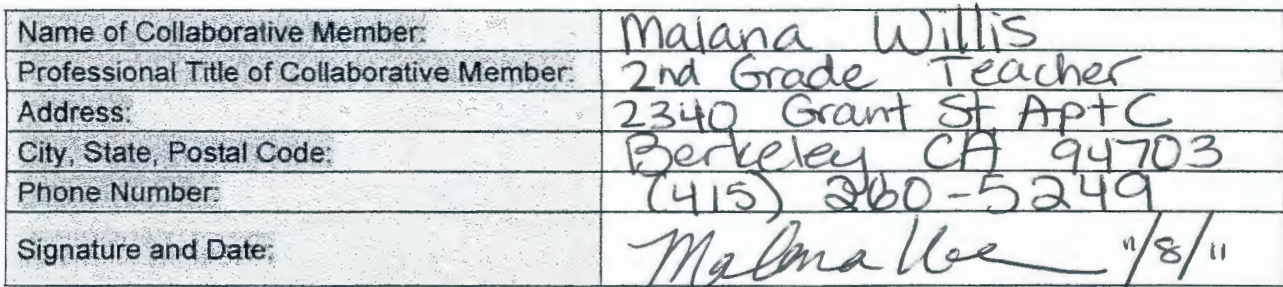 Name of Collaborative Member: Malana Willis
Professional Title of Collaborative Member: 2nd Grade Teacher
Address: 2340 Grant St Apt C
City, State, Postal Code: Berkeley CA 94703
Phone Number: (415) 260-5249
Signature and Date: Malana 11/8/11